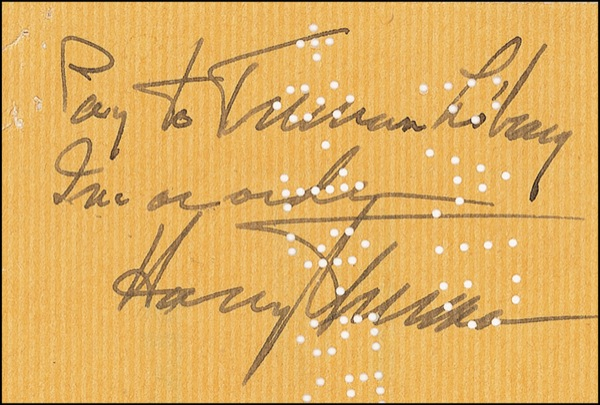 Pay to Truman Library
Inc or order
Harry Truman